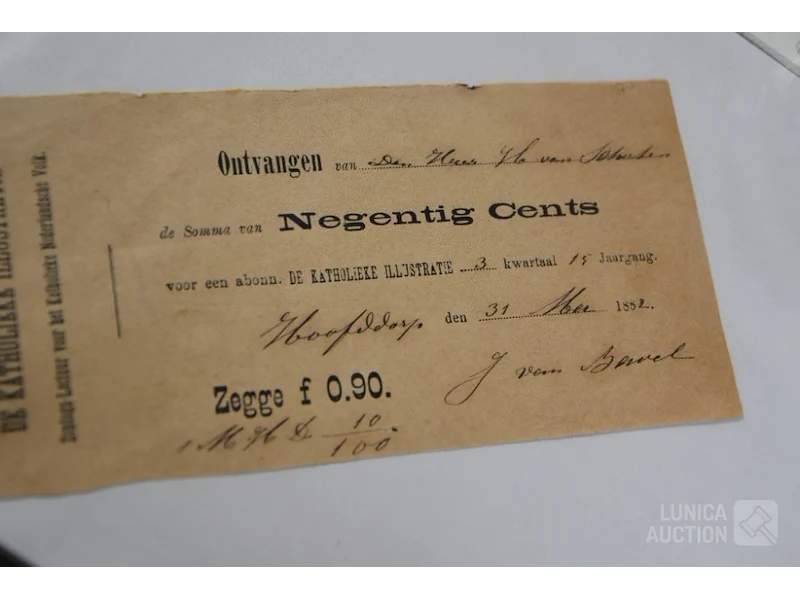 Ontvangen van Den Heer
de Somma van Negentig Cents
voor een abonn. DE KATHOLIEKE ILLUSTRATIE 3 kwartaal 15 Jaargang.
Hoofddorp den 31 Mei 1882.
J van Bavel
Zegge f 0.90.
10
100
DE KATHOLIEKE ILLUSTRATIE
Zondags Lectuur voor het Katholieke Nederlandsche Volk.
LUNICA
AUCTION